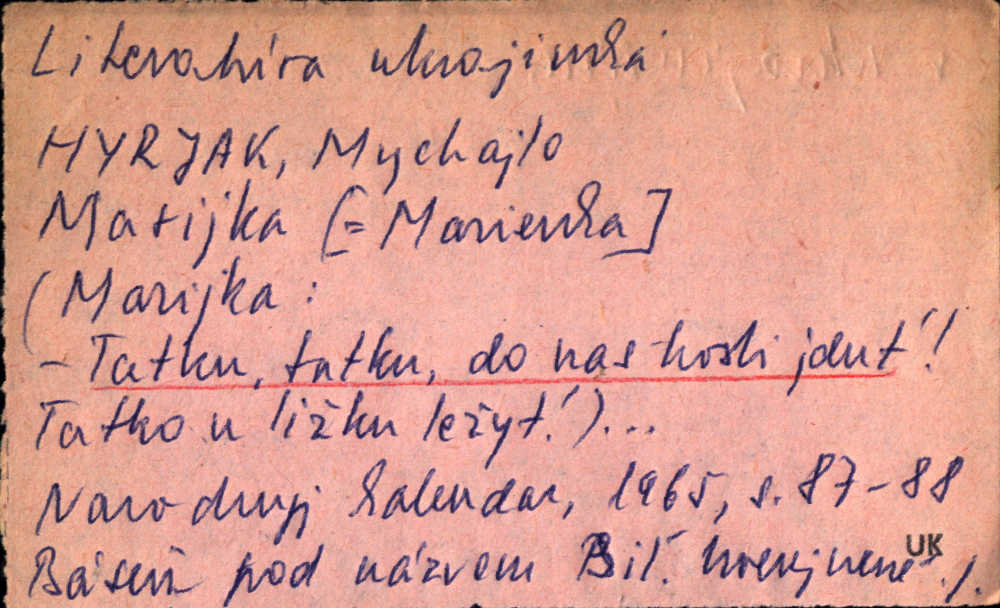 Literatúra ukrajinská
HYRJAK, Mychajlo
Marijka [= Marienka]
(Marijka :
- Tatku, tatku, do nas hosti jdut'!
Tatko u ližku ležyt'.)...
Narodnyj kalendar, 1965, s. 87-88
Báseň pod názvem Bil'.
UK